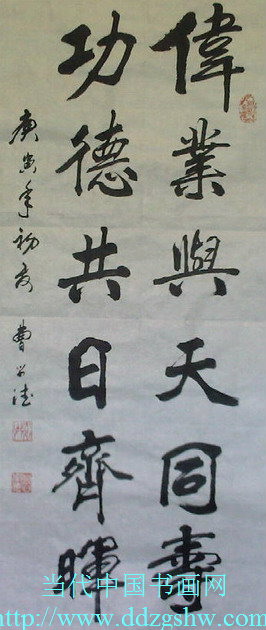 偉業與天同壽
功德共日齊暉
庚寅年初夏 曹
当代中国书画网
http://www.ddzgshw.